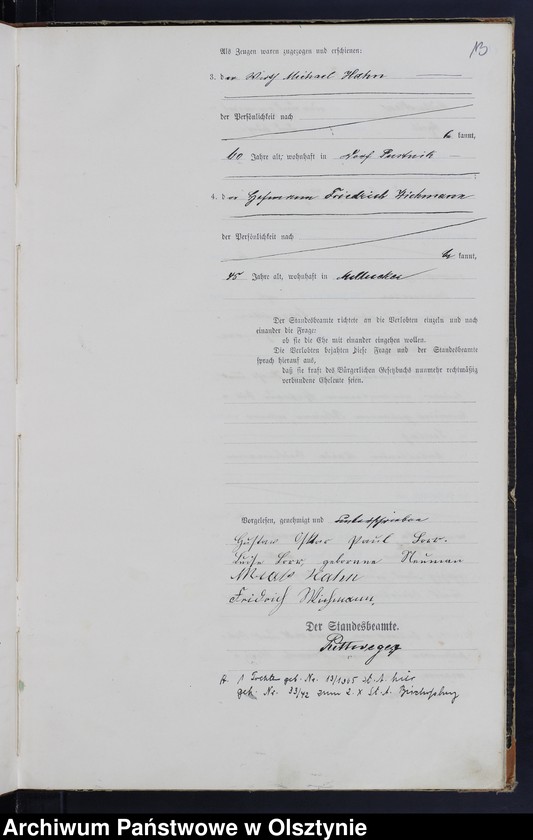 Als Zeugen waren zugezogen und erschienen:
3. der Wirth Michael Hahn
der Persönlichkeit nach
be kannt,
60 Jahre alt, wohnhaft in Dorf
4. der Friedrich Wichmann
der Persönlichkeit nach
be kannt,
45 Jahre alt, wohnhaft in
Der Standesbeamte richtete an die Verlobten einzeln und nach
einander die Frage:
ob sie die Ehe mit einander eingehen wollen.
Die Verlobten bejahten diese Frage und der Standesbeamte
sprach hierauf aus,
daß sie kraft des Bürgerlichen Gesetzbuchs nunmehr rechtmäßig
verbundene Eheleute seien.
Vorgelesen, genehmigt und unterschrieben
Gustav Paul
Luise geborene Neuman
Hahn
Fridrich Wichmann.
Der Standesbeamte.
1 Tochter geb. Nr. St. A. hier
geh. Nr. 33/42 zum 2. X St. A. Bischofsburg
Archiwum Państwowe w Olsztynie